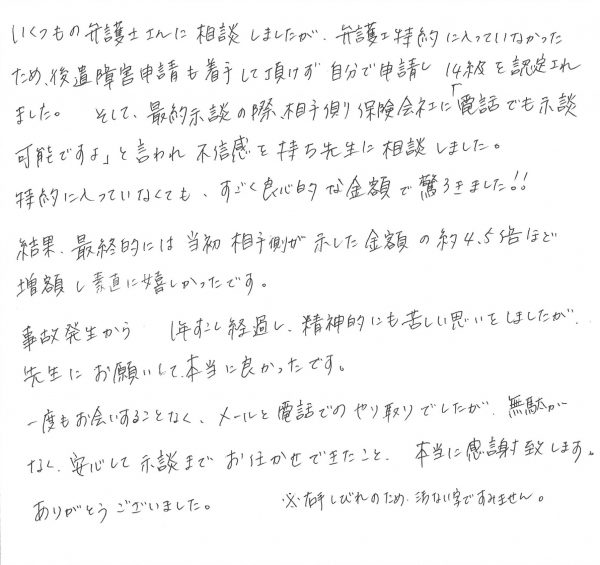 いくつもの弁護士さんに相談しましたが、弁護士特約に入っていなかった
ため、後遺障害申請も着手して頂けず自分で申請し14級を認定され
ました。 そして、最終示談の際、相手側保険会社に「電話でも示談
可能ですよ」と言われ不信感を持ち先生に相談しました。
特約に入っていなくても、すごく良心的な金額で驚ろきました!!
結果、最終的には当初相手側が示した金額の約4.5倍ほど
増額し素直に嬉しかったです。
事故発生から 1年すこし経過し、精神的にも苦しい思いをしましたが、
先生にお願いして、本当に良かったです。
一度もお会いすることなく、メールと電話でのやり取りでしたが、無駄が
なく、安心して示談までお任せできたこと、 本当に感謝致します。
ありがとうございました。 ※右手しびれのため、汚ない字ですみません。